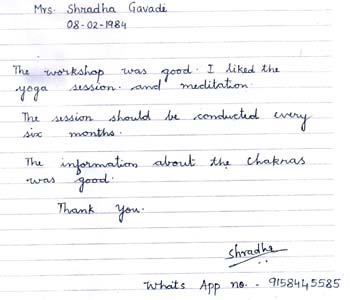 Mrs. Shradha Gavadi
08-02-1984
The workshop was good. I liked the
yoga session. and meditation.
The session should be conducted every
six months.
The information about the chakras
was good.
Thank You.
Shradha
Whats App no. - 9158445585